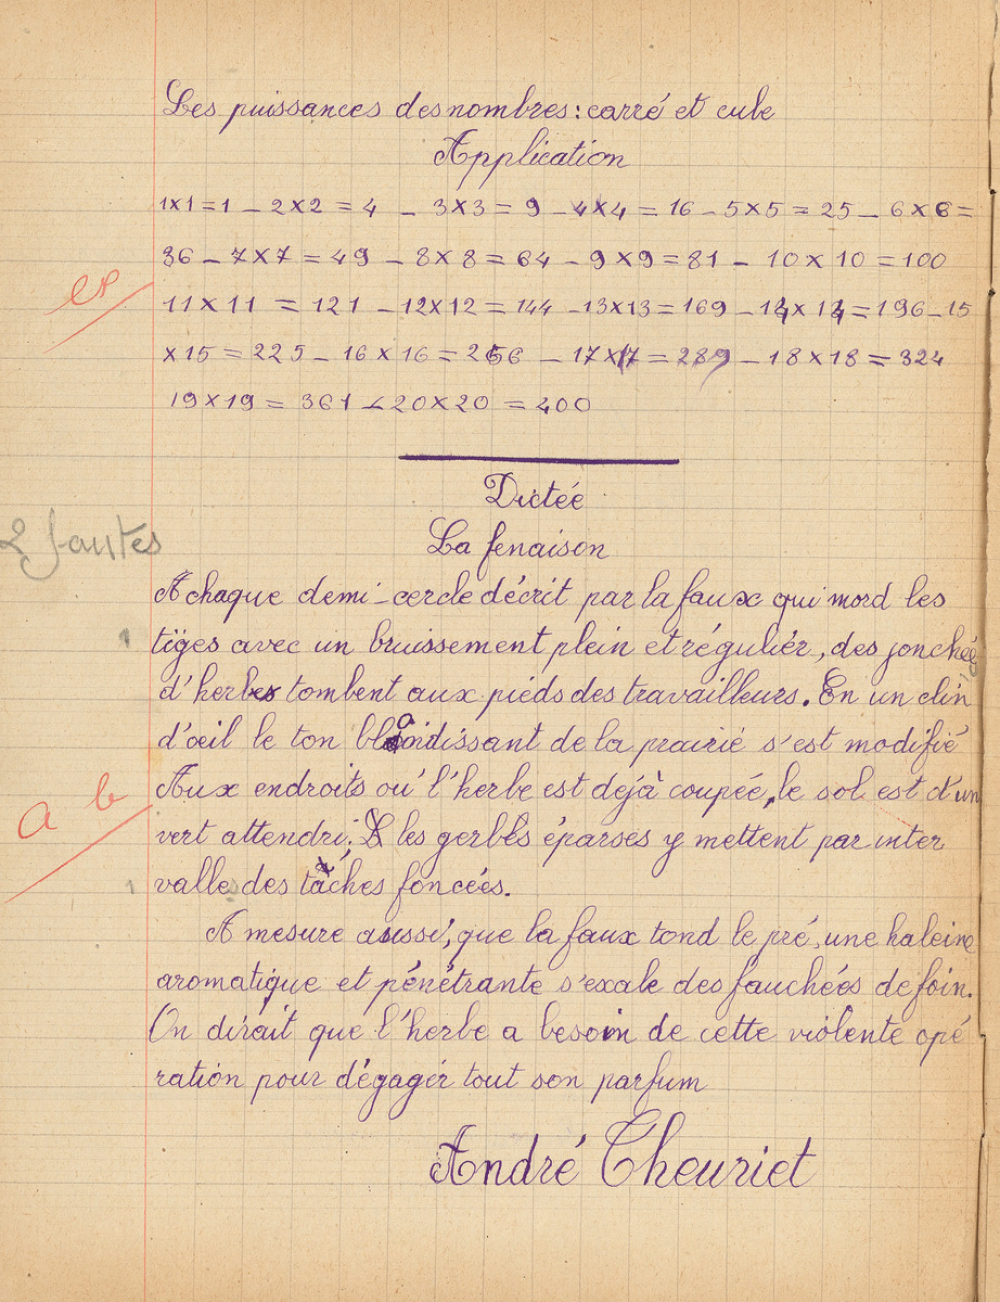 Les puissances des nombres : carré et cube
Application
1×1 = 1 – 2×2 = 4 – 3×3 = 9 – 4×4 = 16 – 5×5 = 25 – 6×6 =
36 – 7×7 = 49 – 8×8 = 64 – 9×9 = 81 – 10×10 = 100
11×11 = 121 – 12×12 = 144 – 13×13 = 169 – 14×14 = 196 – 15
×15 = 225 – 16×16 = 256 – 17×17 = 289 – 18×18 = 324
19×19 = 361 – 20×20 = 400
Dictée
2 fautes
La fenaison
A chaque demi-cercle décrit par la faux qui mord les
tiges avec un bruissement plein et régulier, des jonchée
d'herbes tombent aux pieds des travailleurs. En un clin
d'œil le ton blondissant de la prairie s'est modifié
Aux endroits où l'herbe est déjà coupée, le sol est d'un
a b
vert attendri. & les gerbes éparses y mettent par inter
valle des tâches foncées.
A mesure aussi, que la faux tond le pré, une haleine
aromatique et pénétrante s'exale des fauchées de foin.
On dirait que l'herbe a besoin de cette violente opé
ration pour dégager tout son parfum
André Theuriet